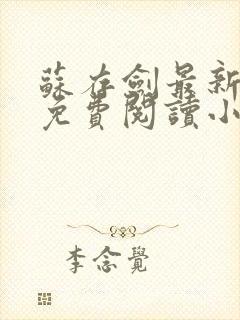 蘇存劍最新
免費閱讀小
李念覺